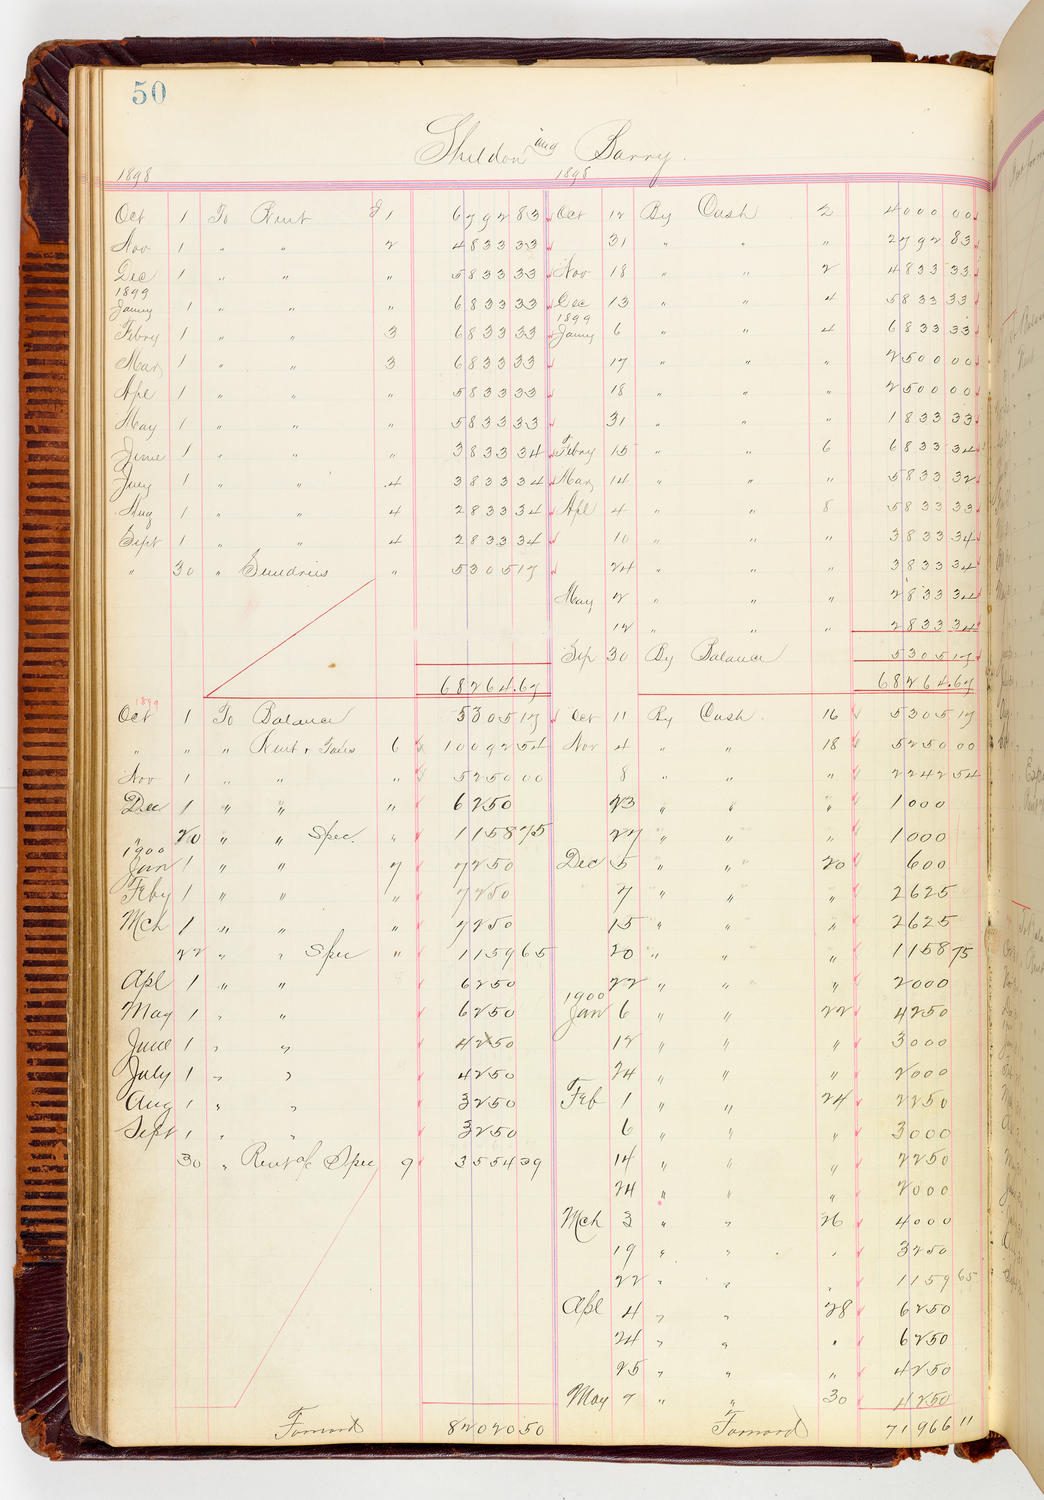 50
Sheldon and Barry.
1898 1898
Oct 1 To Rent J 1 6792 83 Oct 12 By Cash 2 4000 00
Nov 1 " " 2 4833 33 31 " " " 2792 83
Dec 1 " " " 5833 33 Nov 18 " " 2 4833 33
1899
Janny 1 " " " 6833 33 Dec 13 " " 4 5833 33
1899
Febry 1 " " 3 6833 33 Janny 6 " " 4 6833 33
Mar 1 " " 3 6833 33 17 " " " 2500 00
Apl 1 " " " 5833 33 18 " " " 2500 00
May 1 " " " 5833 33 31 " " " 1833 33
June 1 " " " 3833 34 Febry 15 " " 6 6833 34
July 1 " " 4 3833 34 Mar 14 " " " 5833 32
Aug 1 " " 4 2833 34 Apl 4 " " 8 5833 33
Sept 1 " " 4 2833 34 10 " " " 3833 34
" 30 " Sundries " 5305 17 24 " " " 3833 34
May 2 " " " 2833 34
12 " " " 2833 34
Sep 30 By Balance 5305 17
68264.67 68264.67
1899
Oct 1 To Balance 5305 17 Oct 11 By Cash 16 5305 17
" " " Rent & Taxes 6 10092 54 Nov 4 " " 18 5250 00
Nov 1 " " " 5250 00 8 " " " 2242 54
Dec 1 " " " 6250 23 " " " 1000
" 20 " " Spec. " 1158 75 27 " " " 1000
1900
Jan 1 " " 7 7250 Dec 5 " " 20 600
Feby 1 " " " 7250 7 " " " 2625
Mch 1 " " " 7250 15 " " " 2625
22 " " Spec " 1159 65 20 " " " 1158 75
Apl 1 " " 6250 22 " " " 2000
1900
May 1 " " 6250 Jan 6 " " 22 4250
June 1 " " 4250 12 " " " 3000
July 1 " " 4250 24 " " " 2000
Aug 1 " " 3250 Feb 1 " " 24 2250
Sept 1 " " 3250 6 " " " 3000
30 " Rent of Spec 9 3554 39 14 " " " 2250
24 " " " 2000
Mch 3 " " 26 4000
19 " " " 3250
22 " " " 1159 65
Apl 4 " " 28 6250
24 " " " 6250
25 " " " 4250
May 7 " " 30 4250
Forward 82020 50 Forward 71966 11